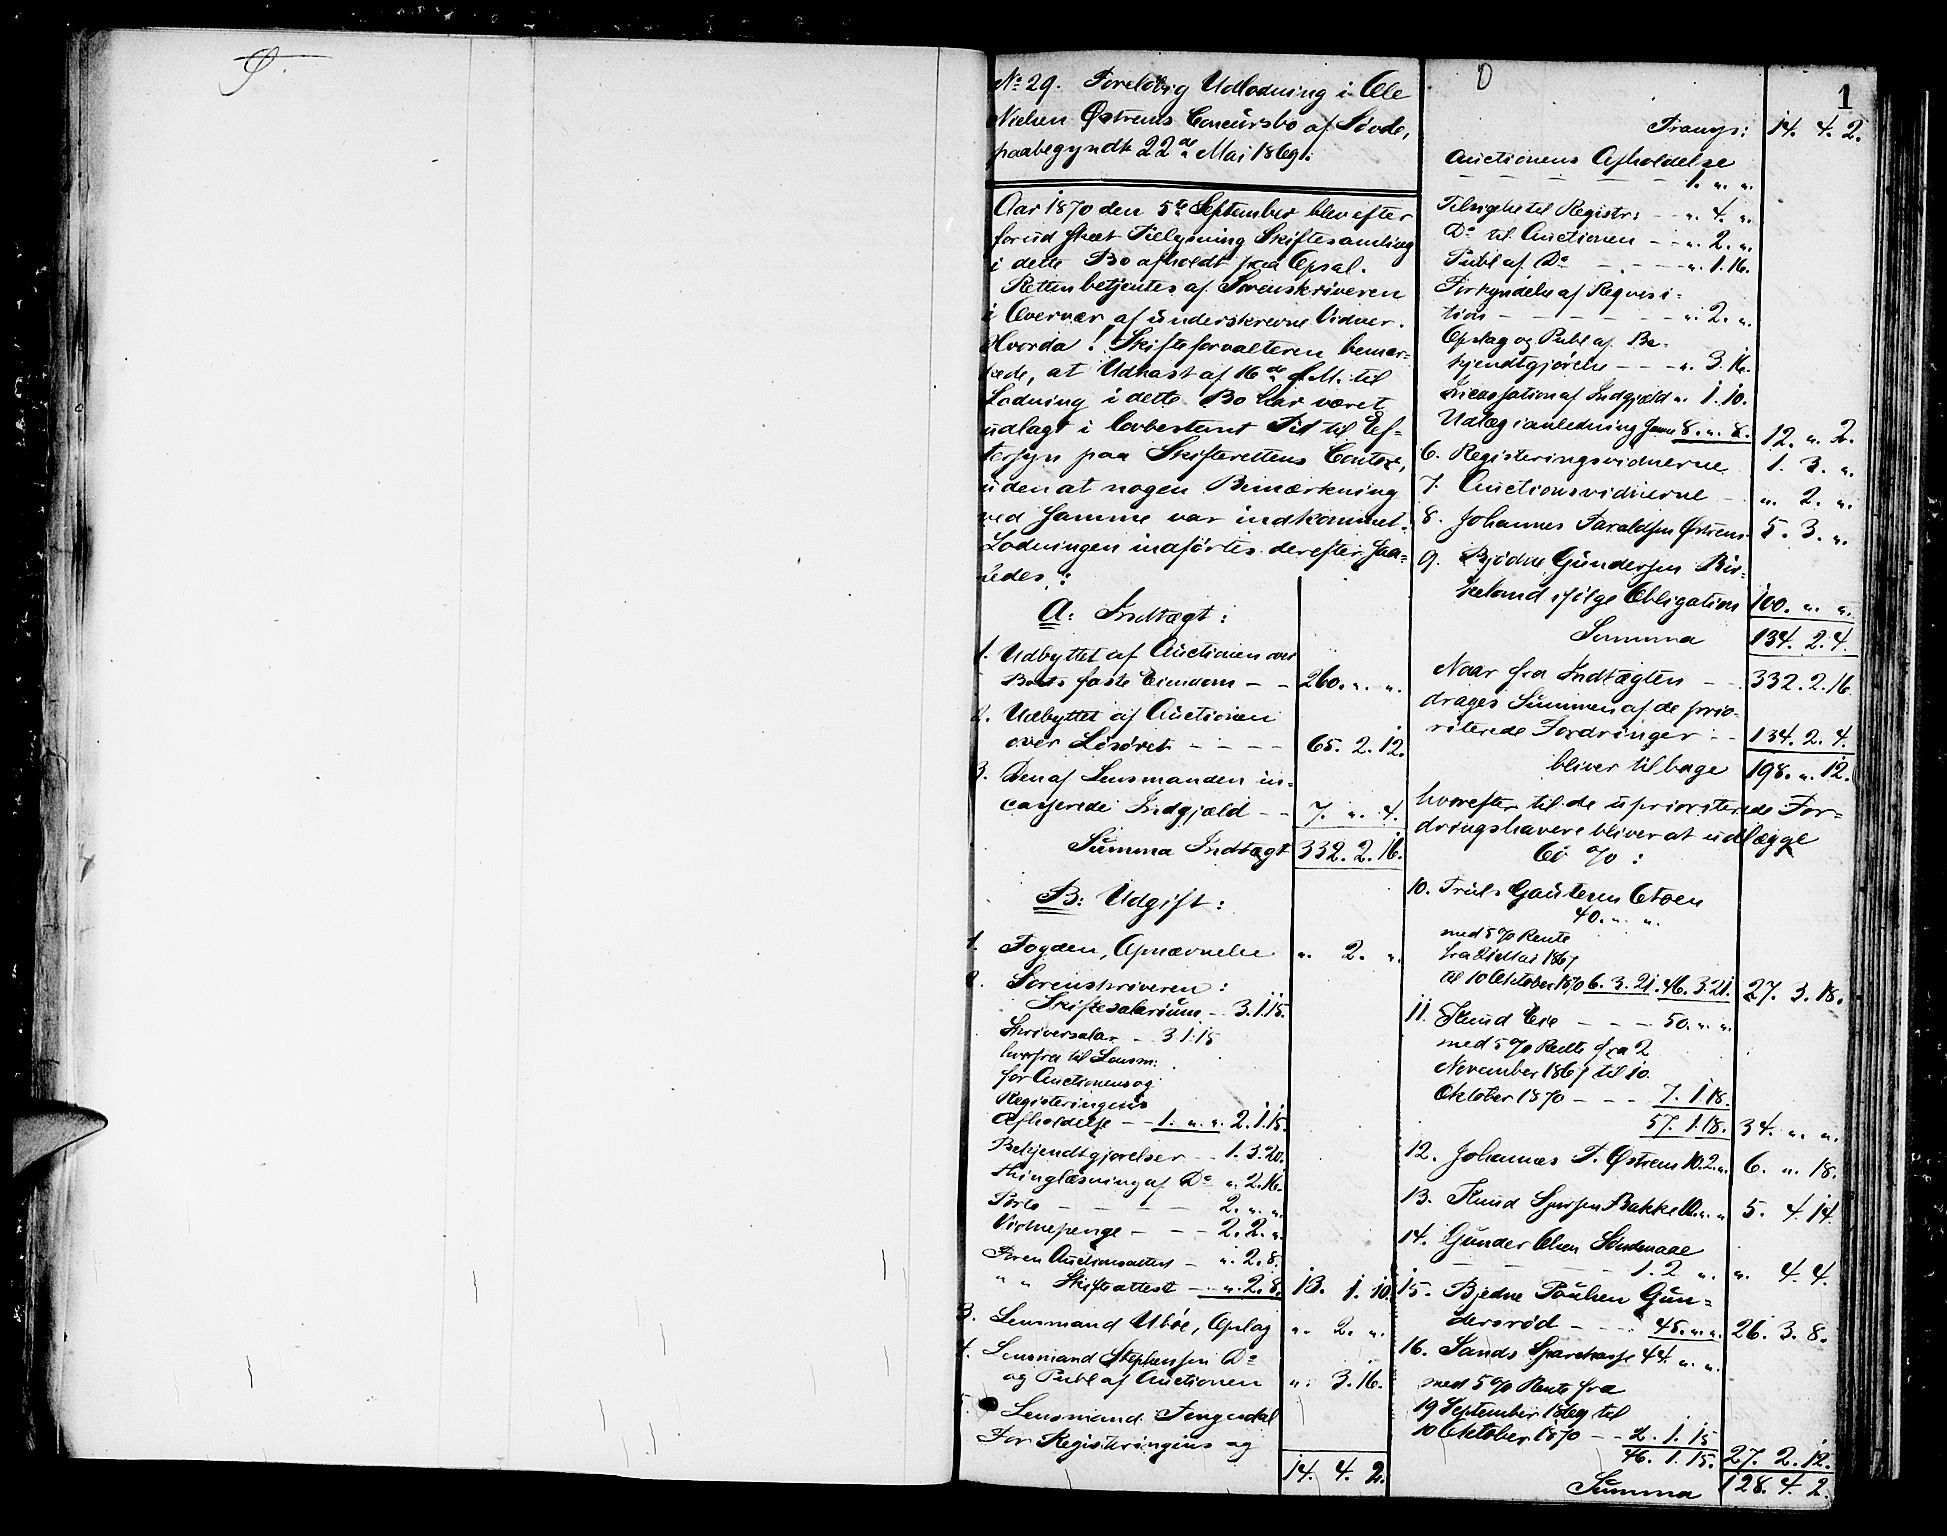 1
No 29. Foreløbig Udlodning i Ole
Nielsen Østrems Concursbo af Sövde,
paabegyndt 22de Mai 1869.
Aar 1870 den 5te September blev efter
forud skeet Tillysning Skiftesamling
i dette Bo afholdt paa Opsal.
Retten betjentes af Sorenskriveren
i Overvær af underskrevne Vidner.
Hvorda! Skifteforvalteren bemær-
kede, at Udkast af 16de f. M. til
Lodning i dette Bo har været
udlagt i lovbestemt Tid til Ef-
tersyn paa Skifterettens Contor,
uden at nogen Bemærkning
ved samme var indkommet.
Lodningen indførtes derefter saa-
ledes:
A: Indtægt:
1. Udbyttet af Auctionen over
Boets faste Eiendom — — 260. „. „.
2. Udbyttet af Auctionen
over Løsøret — — — — 65. 2. 12.
3. Den af Lensmanden in-
casserede Indgjæld — — 7. „. 4.
Summa Indtægt 332. 2. 16.
B: Udgift:
1. Fogden, Opnævnelse „. 2. „.
2. Sorenskriveren:
Skiftesalarium — 3. 1. 15.
Skriversalær — 3. 1. 15
herfra til Lensm.
for Auctionens og
Registeringens
Afholdelse — — 1. „. „. 2. 1. 15.
Bekjendtgjørelser — 1. 3. 20.
Thinglæsning af Do „. 2. 16.
Porto — — — — 2. „. „.
Vidnepenge — — — 2. 2. „.
For en Auctionsattest — „. 2. 8.
„ „ Skifteattest — „. 2. 8. 13. 1. 10.
3. Lensmand Uböe, Opslag „. 2. „.
4. Lensmand Stephensen Do
og Publ af Auctionen „. 3. 16.
5. Lensmand Tengesdal
For Registeringens og
14. 4. 2.
Transp: 14. 4. 2.
Auctionens Afholdelse
— — — — — 1. „. „.
Tilsigelse til Registr: — — „. 4. „.
Do til Auctionen — — „. 2. „.
Publ af Do — . — — — „. 1. 16.
Forkyndelse af Reqvisi-
tion — — — — — — „. 2. „.
Opslag og Publ af Be-
kjendtgjørelse — — — „. 3. 16.
Incassation af Indgjæld „. 1. 10.
Udlæg i anledning samme 8. „. 8. 12. „. 2.
6. Registeringsvidnerne 1. 3. „.
7. Auctionsvidnerne — „. 2. „.
8. Johannes Taraldsen Østrem 5. 3. „.
9. Bjødne Gundersen Bir-
keland ifølge Obligation 100. „. „.
Summa 134. 2. 4.
Naar fra Indtægten — — 332. 2. 16
drages Summen af de prio-
riterede Fordringer — — 134. 2. 4.
bliver tilbage 198. „. 12.
hvorefter til de uprioriterede For-
dringshavere bliver at udlægge
60 %:
10. Truls Gautesen
40. „. „.
med 5 % Rente
fra Mai 1867
til 10 Oktober 1870 6. 3. 21. 46. 3. 21. 27. 3. 18.
11. Knud Eie — — — 50. „. „.
med 5 % Rente fra 2
November 1867 til 10.
Oktober 1870 — — — 7. 1. 18.
57. 1. 18. 34. „. „.
12. Johannes T. Østrem 10. 2. „. 6. „. 18.
13. Knud Bakke 10. „. „. 5. 4. 14.
14. Gunder Olsen
— — — — 1. 2 „. „. 4. 4.
15. Bjødne Poulsen Gun-
dersrød — — — 45. „. „. 26. 3. 8.
16. Sands Sparekasse 44. „. „.
med 5 % Rente fra
19 September 1869 til
10 Oktober 1870 — — 2. 1. 15
46. 1. 15. 27. 2. 12.
Summa 128. 4. 2.